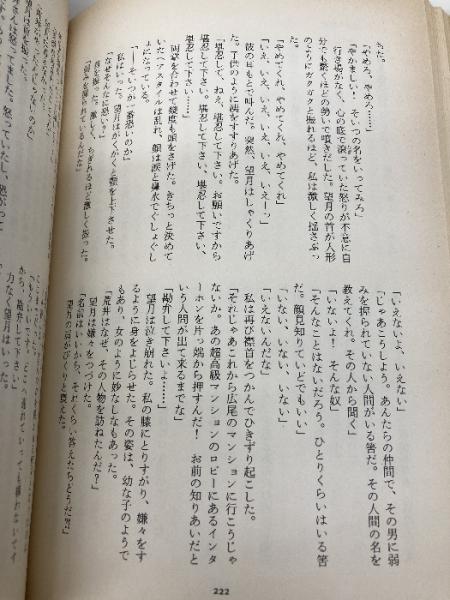 めた。
「やめろ、やめろ……」
「やかましい！　そいつの名をいってみろ」
行き場がなく、心の底で滾っていた怒りが不意に自
分でも驚くほどの勢いで噴きだした。望月の首が人形
のようにガタガクと振れるほど、私は激しく揺さぶっ
た。
「やめてくれ、やめてくれ」
「いえ、いえ、いえ、いえ、いえーっ」
彼の目もとで叫んだ。突然、望月はしゃくりあげ
た。子供のように洟をすすりあげた。
「堪忍して、ねえ、堪忍して下さい。お願いですから
堪忍して下さい。堪忍して下さい、堪忍して下さい、
堪忍して下さい……」
両掌を合わせて幾度も頭をさげた。きちっと決めて
いたヘアスタイルは乱れ、顔は涙と鼻水でぐしょぐし
ょになっている。
「――そいつが一番恐いのか」
私はいった。望月はがくがくと顎を上下させた。
「なぜそんなに恐い？」
首を振った。激しく、ちぎれるほど激しく振った。
「弱みを握られているんだな」
「いえないよ、いえない」
「じゃあこうしよう。あんたらの仲間で、その男に弱
みを握られていない人間がいる筈だ。その人間の名を
教えてくれ。その人から聞く」
「いないよ！　そんな奴」
「そんなことはないだろう。ひとりくらいはいる筈
だ。顔見知りていどでもいい」
「いない、いない、いない」
「いえないんだな」
私は再び襟首をつかんでひきずり起こした。
「それじゃあこれから広尾のマンションに行こうじゃ
ないか。あの超高級マンションのロビーにあるインタ
ーホンを片っ端から押すんだ！　お前の知りあいだと
いう人間が出て来るまでな」
「勘弁して下さいよ……」
望月は泣き崩れた。私の膝にとりすがり、嫌々をす
るように身をよじらせた。その姿は、幼な子のようで
もあり、女のように妙なしなもあった。
「荒井はなぜ、その人物を訪ねたんだ？」
望月は嫌々をつづけた。
「名前はいいから、それくらい答えたらどうだ⁈」
望月の肩がびくりと震えた。
222